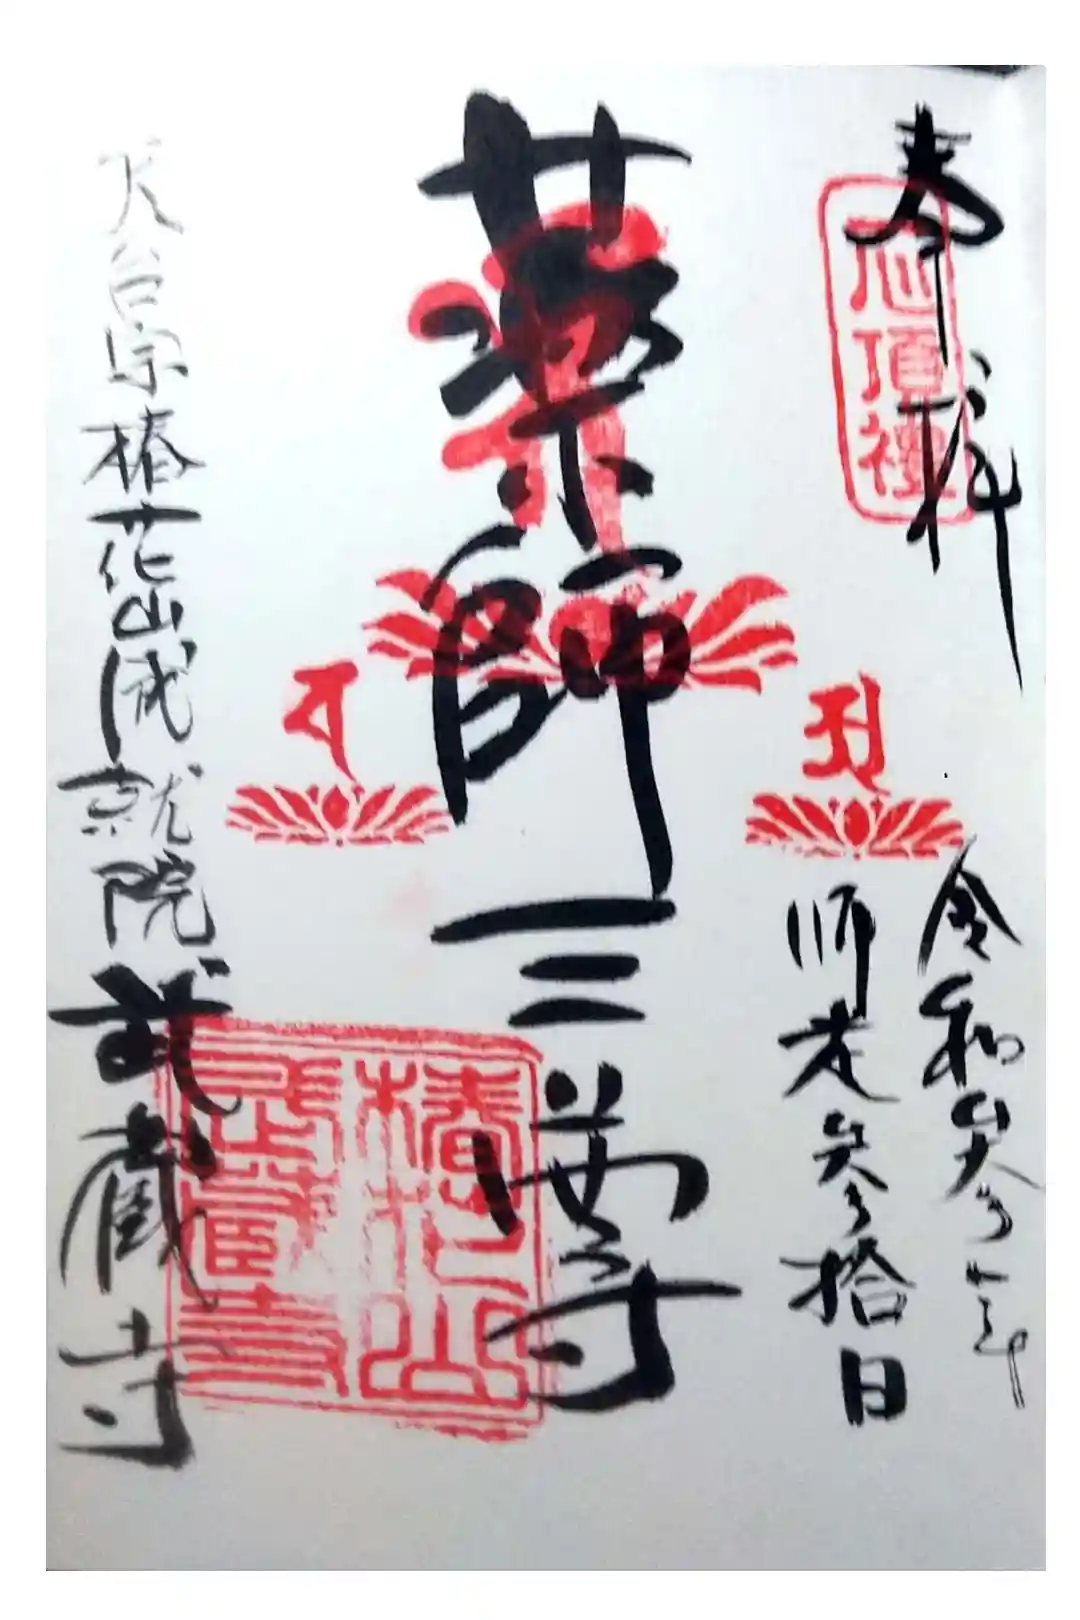 奉拝
心頂禮
令和参年
師走参拾日
薬師三尊
椿花山
武蔵寺
天台宗椿花山成就院武蔵寺